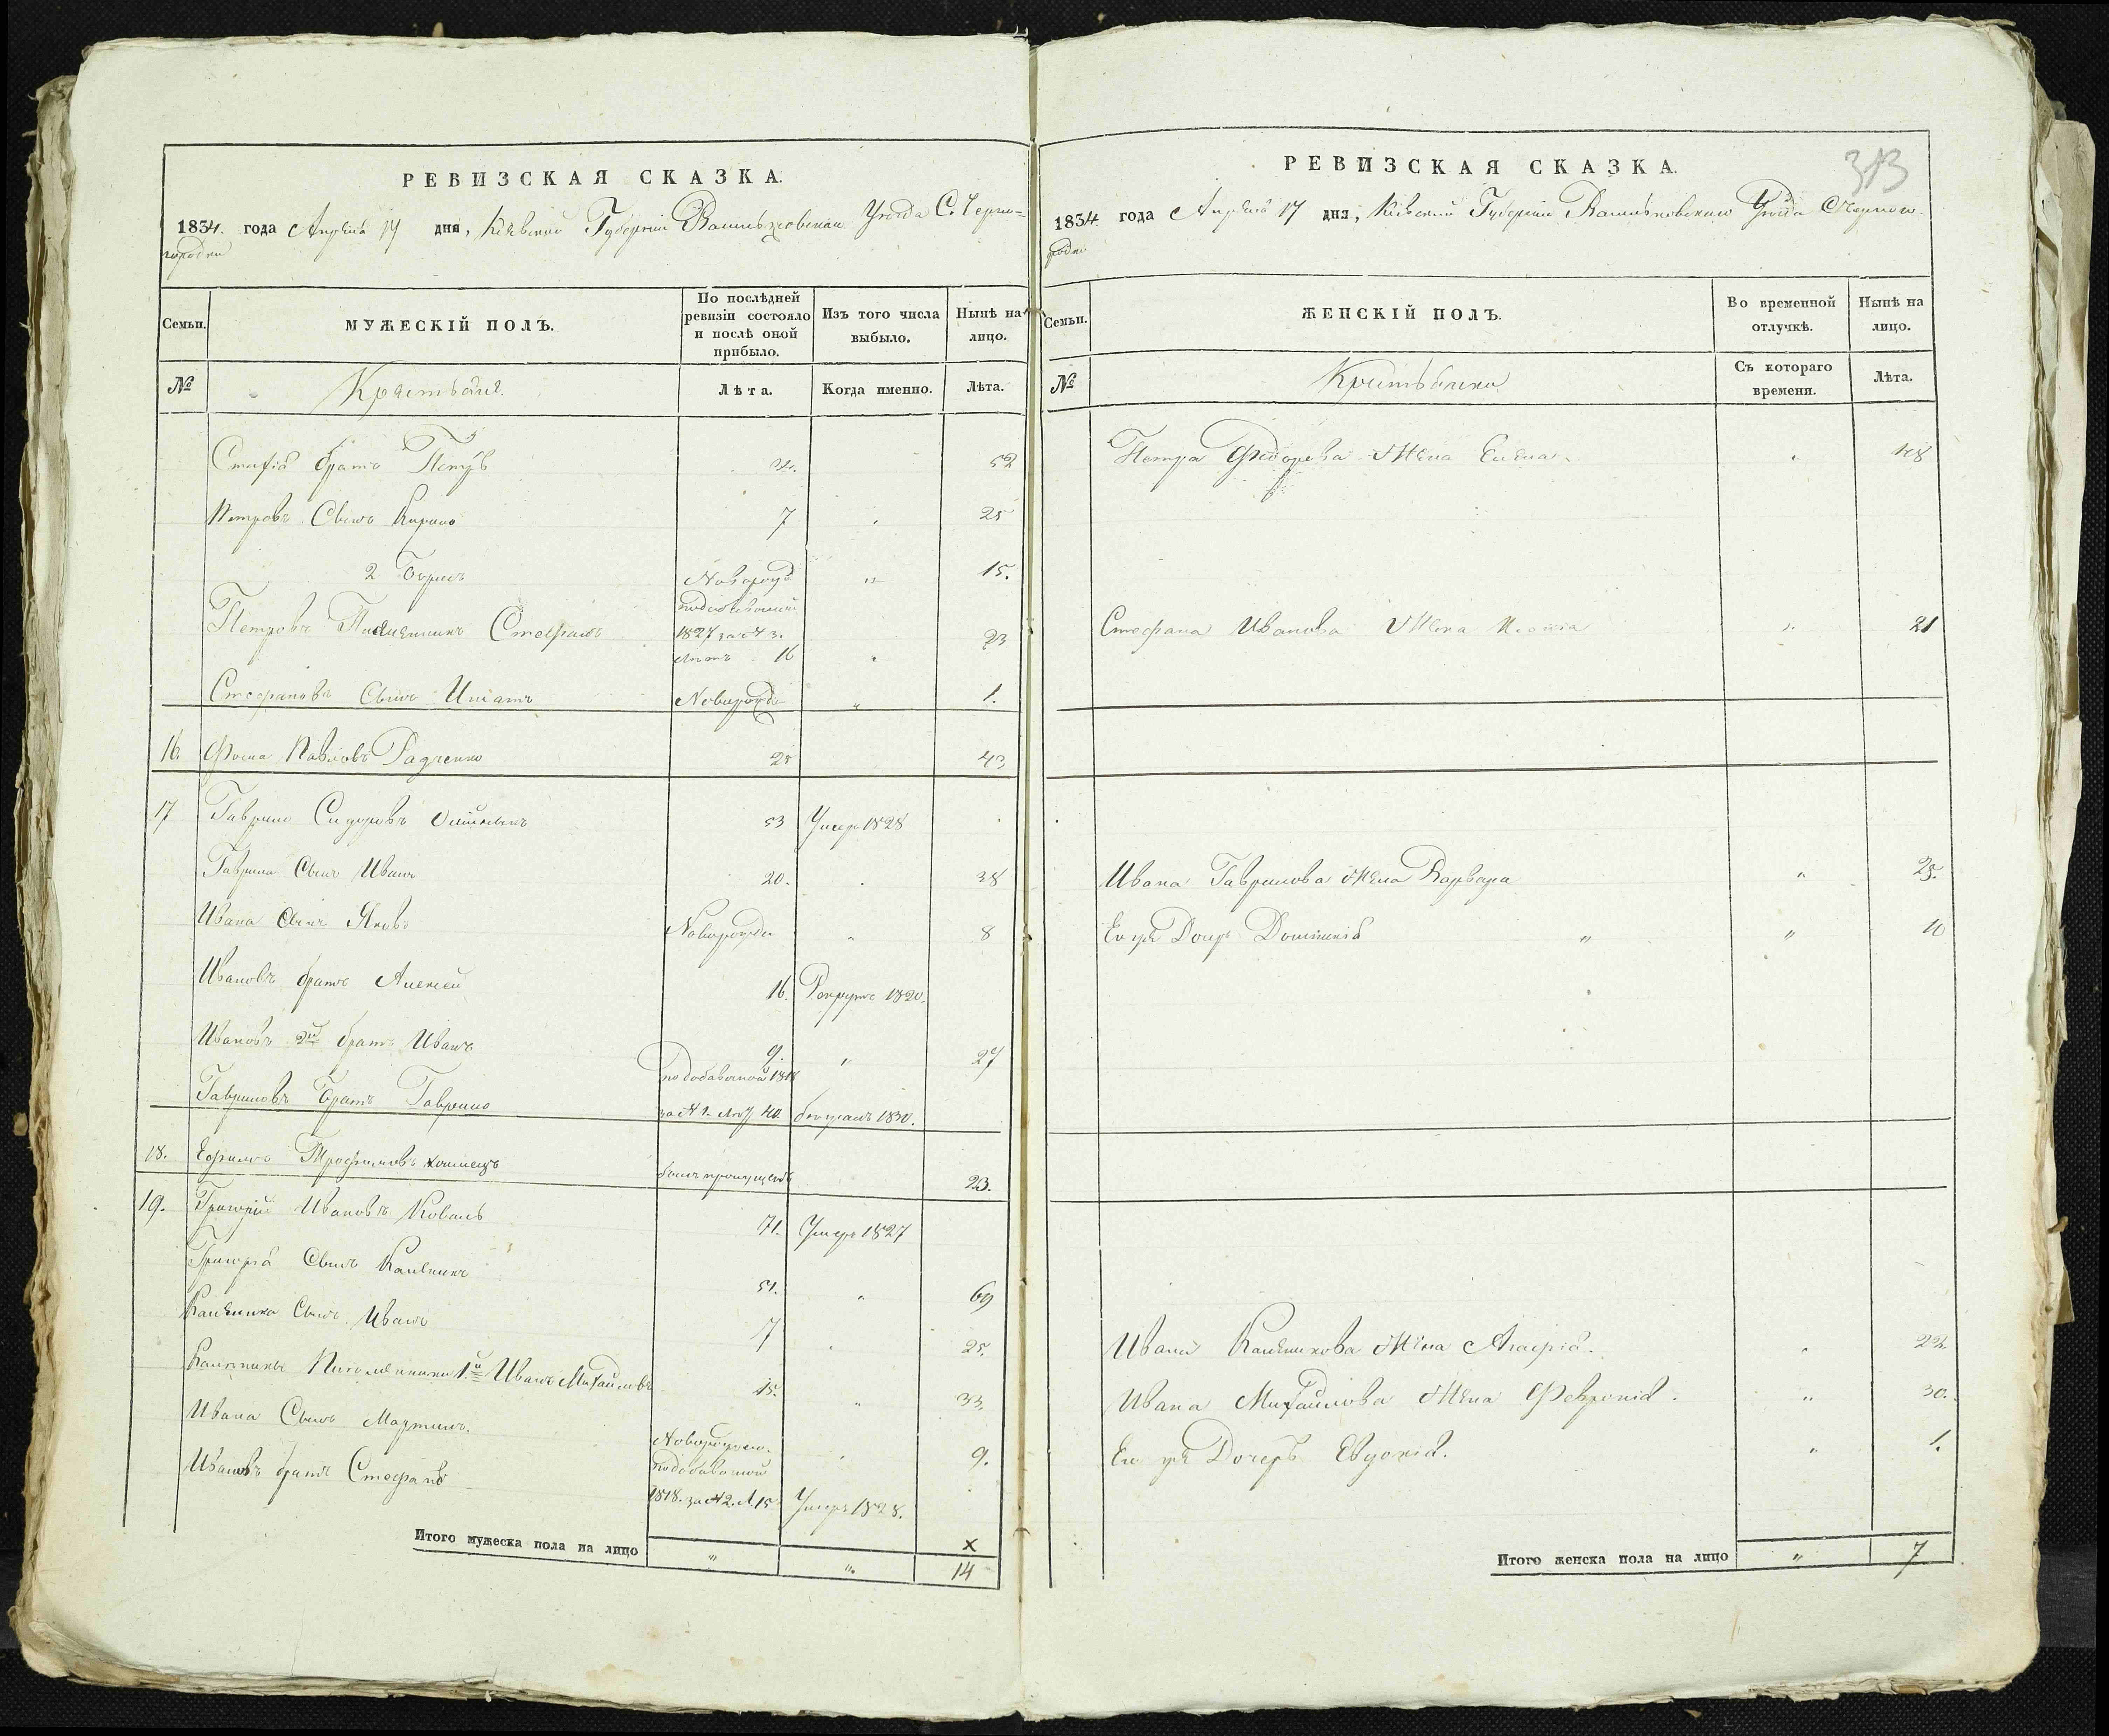 РЕВИЗСКАЯ СКАЗКА.
1834. года Апреля 17 дня, Кіевской Губерніи Васильковскаго Уѣзда С. Черно-
городки
Семьи. МУЖЕСКІЙ ПОЛЪ. По послѣдней ревизіи состояло и послѣ оной прибыло. Изъ того числа выбыло. Нынѣ на лицо.
№ Крестьяне. Лѣта. Когда именно. Лѣта.
братъ Петръ 34. 52
Петровъ Сынъ Кирило 7 25
2 Борисъ Новорожд " 15.
Петровъ Племенникъ Стефанъ 1827 за № 3. 23
лѣтъ 16
Стефановъ Сынъ Новорожде " 1.
16. Фома Павловъ Радченко 25 43
17 Гаврило Сидоровъ 53 Умеръ 1828
Гаврила Сынъ Иванъ 20. 38
Ивана Сынъ Яковъ Новорожде " 8
Ивановъ братъ Алексей 16. Рекрутъ 1820.
Ивановъ 2й братъ Иванъ 9. " 27
по добавочной 1818
Гавриловъ Братъ Гаврило за № 1. 40. бежалъ 1830.
18. Ефимъ Трофимовъ былъ пропущенъ 23.
19. Григорій Ивановъ Коваль 71. Умеръ 1827
Григорія Сынъ Каленикъ 51. " 69
Каленика Сынъ Иванъ 7 25.
Племенники 1й Иванъ Михайловъ 15. " 33.
Ивана Сынъ Мартинъ. Новорожде. 9.
по добавочной
Ивановъ братъ Стефанъ 1818. за № 2. л. 15 Умеръ 1828.
Итого мужеска пола на лицо " " 14
х
РЕВИЗСКАЯ СКАЗКА.
313
1834. года Апреля 17 дня, Кіевской Губерніи Васильковскаго Уѣзда С Черного-
родки
Семьи. ЖЕНСКІЙ ПОЛЪ. Во временной отлучкѣ. Нынѣ на лицо.
№ Крестьянки Съ котораго времени. Лѣта.
Петра Федорова Жена Елена. 48
Стефана Иванова Жена " 21
Ивана Гаврилова Жена Варвара " 25.
Ево жъ Дочерь Домникія " " 10
Ивана Каленикова Жена 22
Ивана Михайлова Жена Февронія. " 30.
Ево жъ Дочерь Евдокія. " 1.
Итого женска пола на лицо " 7